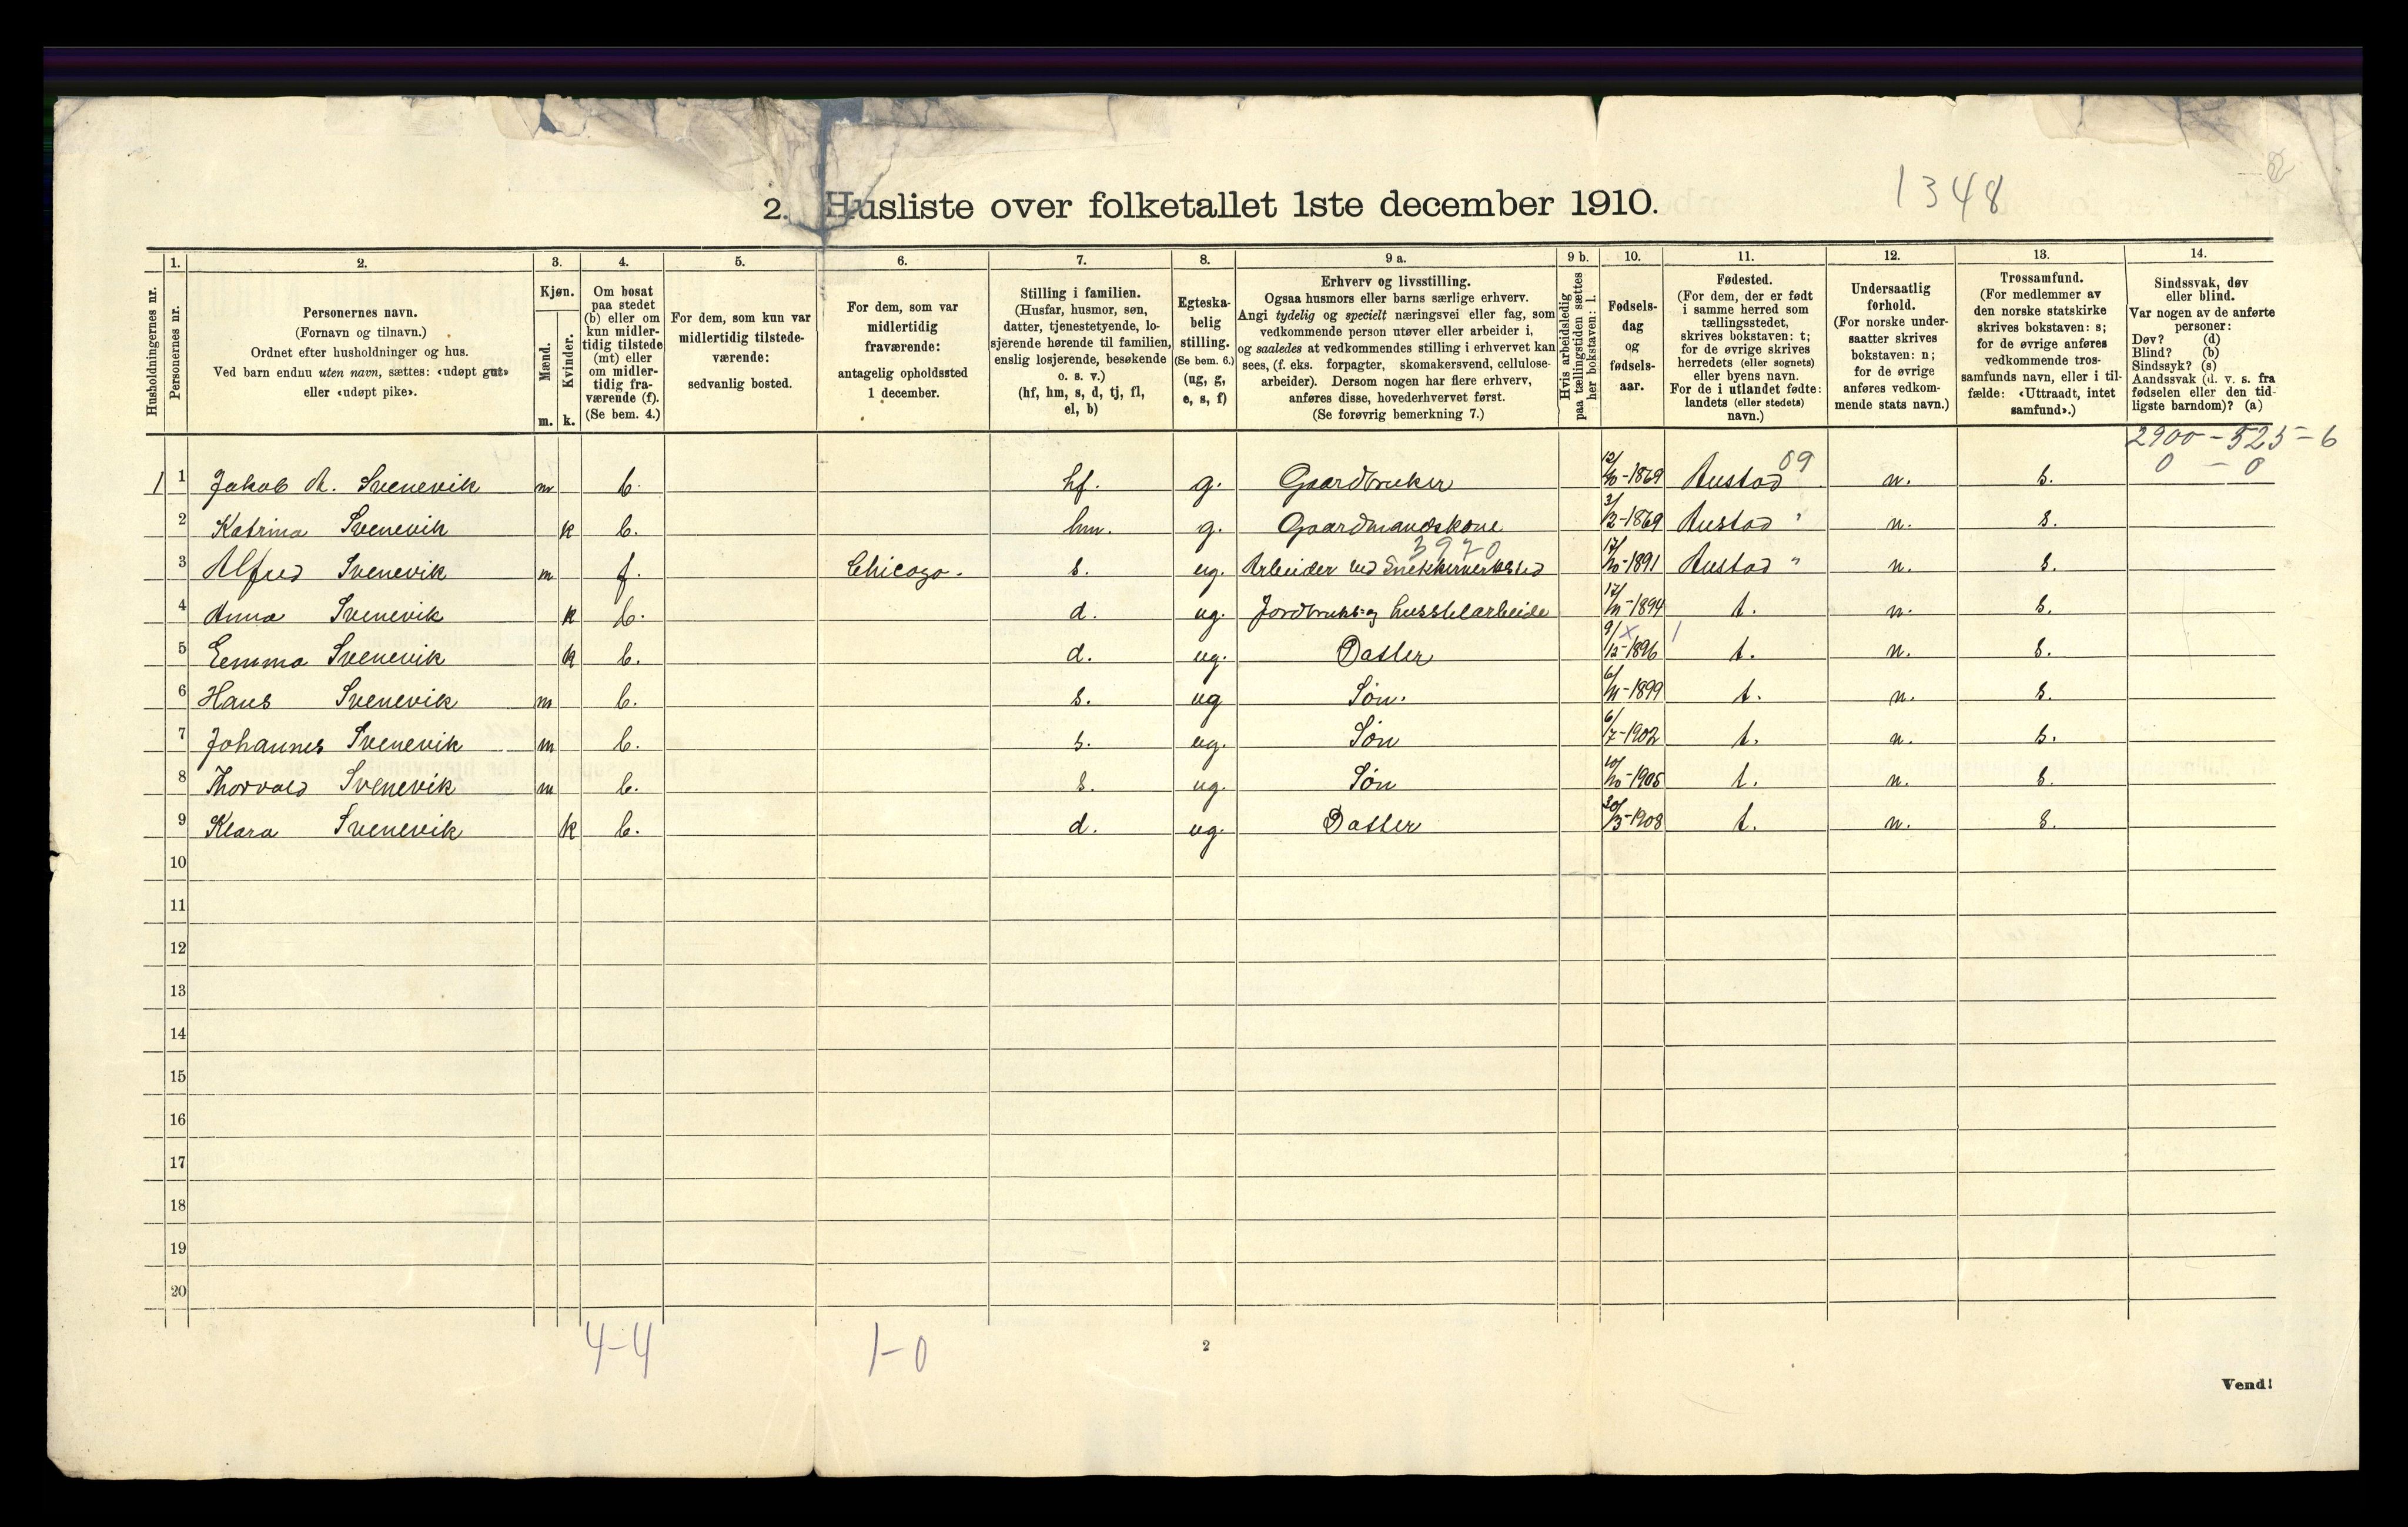 1348
2. Husliste over folketallet 1ste december 1910.
Husholdningernes nr.
1.
Personernes nr.
2.
Personernes navn.
(Fornavn og tilnavn.)
Ordnet efter husholdninger og hus.
Ved barn endnu uten navn, sættes: «udøpt gut»
eller «udøpt pike».
3.
Kjøn.
Mænd.
m.
Kvinder.
k.
4.
Om bosat
paa stedet
(b) eller om
kun midler-
tidig tilstede
(mt) eller
om midler-
tidig fra-
værende (f).
(Se bem. 4.)
5.
For dem, som kun var
midlertidig tilstede-
værende:
sedvanlig bosted.
6.
For dem, som var
midlertidig
fraværende:
antagelig opholdssted
1 december.
7.
Stilling i familien.
(Husfar, husmor, søn,
datter, tjenestetyende, lo-
sjerende hørende til familien,
enslig losjerende, besøkende
o. s. v.)
(hf, hm, s, d, tj, fl,
el, b)
8.
Egteska-
belig
stilling.
(Se bem. 6.)
(ug, g,
e, s, f)
9 a.
Erhverv og livsstilling.
Ogsaa husmors eller barns særlige erhverv.
Angi tydelig og specielt næringsvei eller fag, som
vedkommende person utøver eller arbeider i,
og saaledes at vedkommendes stilling i erhvervet kan
sees, (f. eks. forpagter, skomakersvend, cellulose-
arbeider). Dersom nogen har flere erhverv,
anføres disse, hovederhvervet først.
(Se forøvrig bemerkning 7.)
9 b.
Hvis arbeidsledig
paa tællingstiden sættes
her bokstaven: l.
10.
Fødsels-
dag
og
fødsels-
aar.
11.
Fødested.
(For dem, der er født
i samme herred som
tællingsstedet,
skrives bokstaven: t;
for de øvrige skrives
herredets (eller sognets)
eller byens navn.
For de i utlandet fødte:
landets (eller stedets)
navn.)
12.
Undersaatlig
forhold.
(For norske under-
saatter skrives
bokstaven: n;
for de øvrige
anføres vedkom-
mende stats navn.)
13.
Trossamfund.
(For medlemmer av
den norske statskirke
skrives bokstaven: s;
for de øvrige anføres
vedkommende tros-
samfunds navn, eller i til-
fælde: «Uttraadt, intet
samfund».)
14.
Sindssvak, døv
eller blind.
Var nogen av de anførte
personer:
Døv? (d)
Blind? (b)
Sindssyk? (s)
Aandssvak (d. v. s. fra
fødselen eller den tid-
ligste barndom)? (a)
2900 - 525 - 6
0 - 0
09
1 1 Jakob A. Svenevik m b. hf. g. Gaardbruker 12/10-1869 Austad n. s.
2 Katrina Svenevik k b. hm. g. Gaardmandskone 3/12-1869 Austad " n. s.
3970
3 Alfred Svenevik m f. Chicago. s. ug. Arbeider ved Snekkerverksted 17/10-1891 Austad " n. s.
4 Anna Svenevik k b. d. ug. Jordbruks- og husstelarbeide 17/11-1894 t. n. s.
5 Emma Svenevik k b. d. ug. Datter 9/12-1896 t. n. s.
6 Hans Svenevik m b. s. ug Søn. 6/11-1899 t. n. s.
7 Johannes Svenevik m b. s. ug. Søn 6/7-1902 t. n. s.
8 Thorvald Svenevik m b. s. ug. Søn 10/10-1905 t. n. s.
9 Klara Svenevik k b. d. ug. Datter 30/3-1908 t. n. s.
10
11
12
13
14
15
16
17
18
19
20
4-4 1-0
2
Vend!